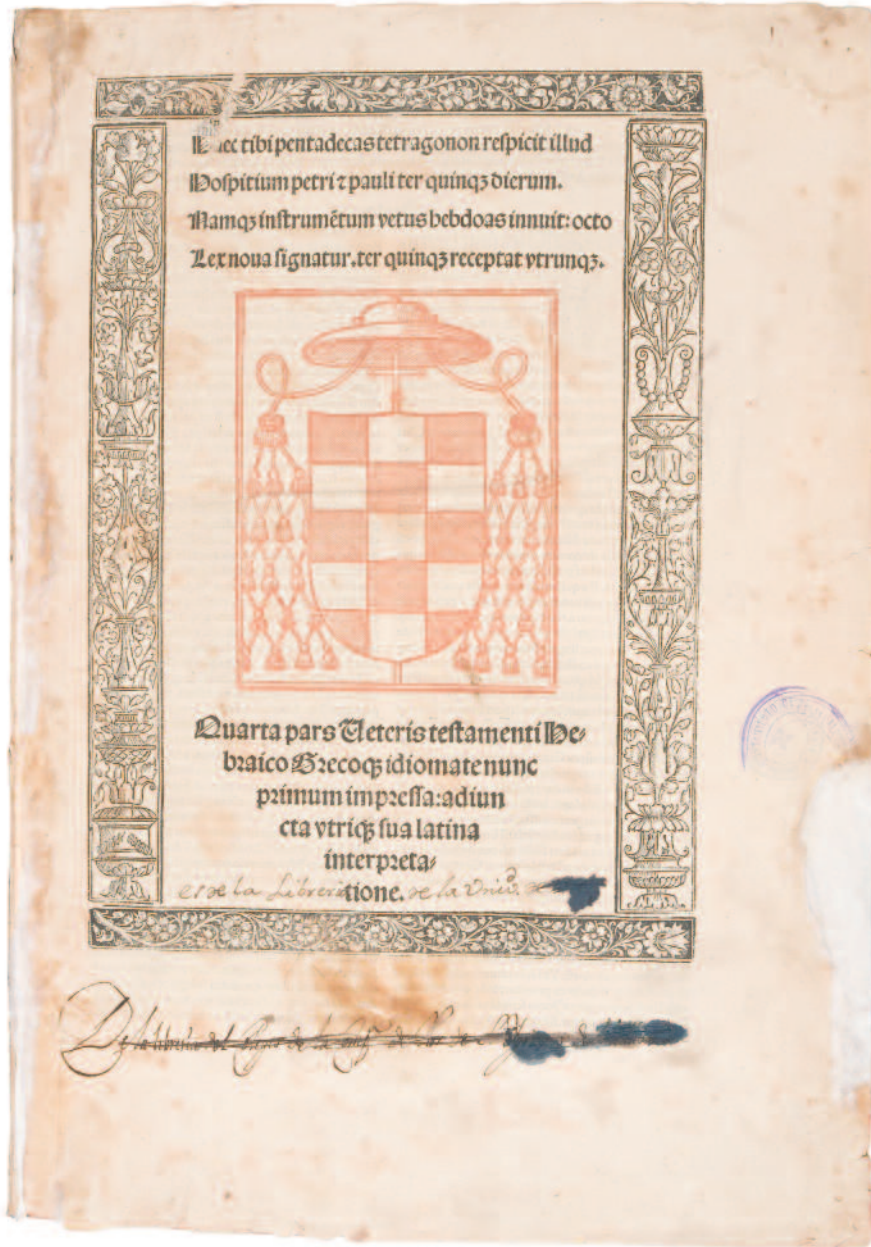 Haec tibi pentadecas tetragonon respicit illud
Hospitium petri ⁊ pauli ter quinqꝫ dierum.
Namqꝫ instrumētum vetus hebdoas innuit: octo
Lex noua signatur. ter quinqꝫ receptat vtrunqꝫ.
Quarta pars Veteris testamenti He⸗
braico Grecoqꝫ idiomate nunc
primum impressa: adiun
cta vtriqꝫ sua latina
interpreta⸗
tione.
es de la Libreria de la Univd.
De la libreria del